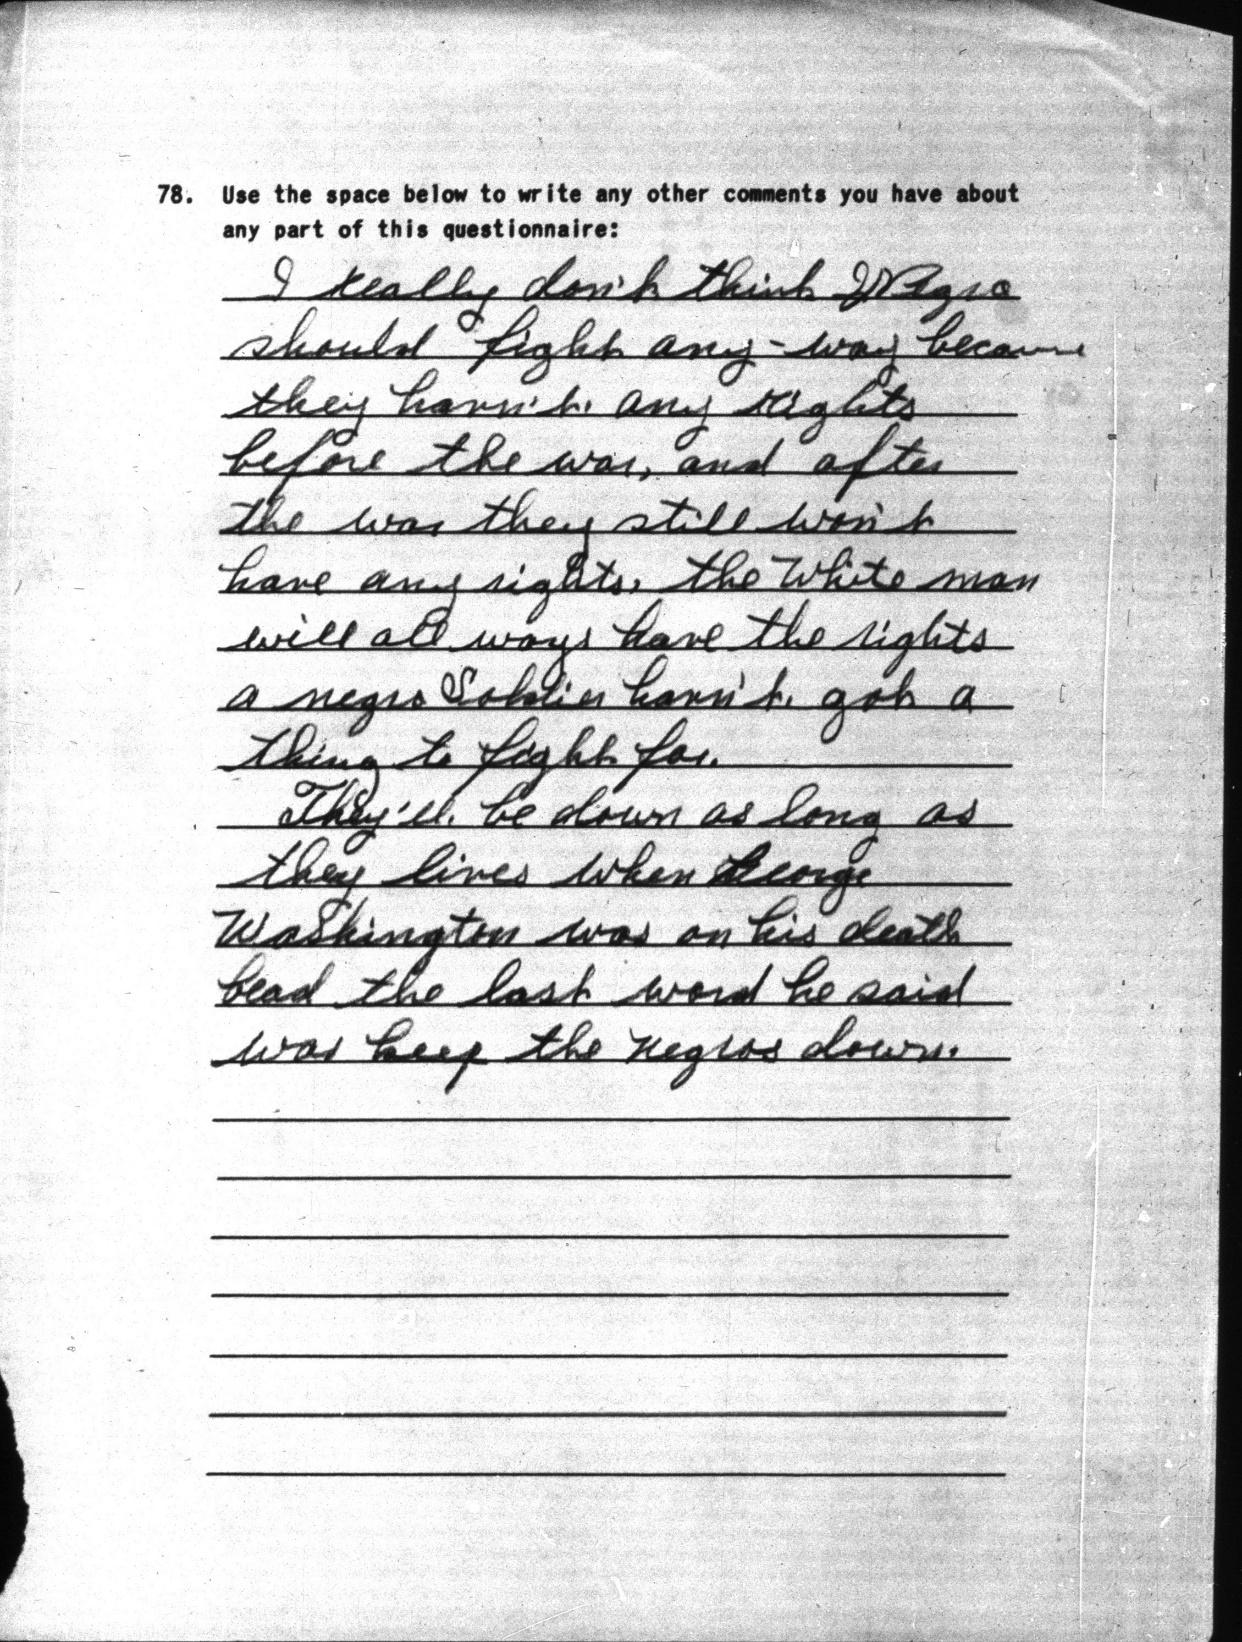 78. Use the space below to write any other comments you have about
any part of this questionnaire:
I really don't think Negro
should fight any-way because
they havn't any rights
before the war, and after
the war they still won't
have any rights. the White man
will all ways have the rights
a negro Soldier havn't got a
thing to fight for.
They'll be down as long as
they lives when George
Washington was on his death
bead the last word he said
was keep the Negros down.